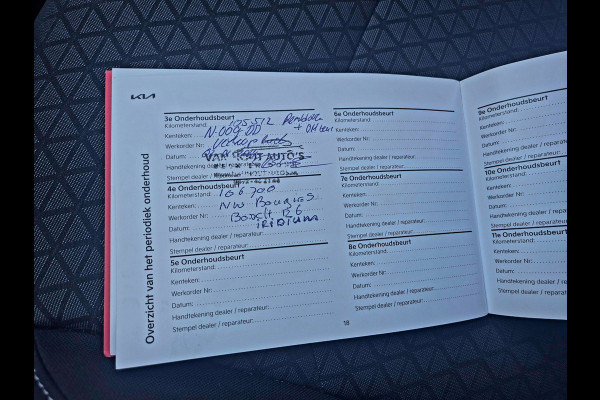 KIA
Overzicht van het periodiek onderhoud
3e Onderhoudsbeurt
Kilometerstand: 175.512
+ OH beurt
Kenteken: N-009-DD
Werkorder Nr:
Datum:
VAN KUIT AUTO'S
Handtekening dealer / reparateur:
Stempel dealer / reparateur:
4e Onderhoudsbeurt
Kilometerstand: 166.700
Kenteken: NW Bougies
Werkorder Nr: Bosch R6
Datum: IRIDIUM
Handtekening dealer / reparateur:
Stempel dealer / reparateur:
5e Onderhoudsbeurt
Kilometerstand:
Kenteken:
Werkorder Nr:
Datum:
Handtekening dealer / reparateur:
Stempel dealer / reparateur:
6e Onderhoudsbeurt
Kilometerstand:
Kenteken:
Werkorder Nr:
Datum:
Handtekening dealer / reparateur:
Stempel dealer / reparateur:
7e Onderhoudsbeurt
Kilometerstand:
Kenteken:
Werkorder Nr:
Datum:
Handtekening dealer / reparateur:
Stempel dealer / reparateur:
8e Onderhoudsbeurt
Kilometerstand:
Kenteken:
Werkorder Nr:
Datum:
Handtekening dealer / reparateur:
Stempel dealer / reparateur:
18
9e Onderhoudsbeurt
Kilometerstand:
Kenteken:
Werkorder Nr:
Datum:
Handtekening dealer /
Stempel dealer / repa
10e Onderhoudsbeurt
Kilometerstand:
Kenteken:
Werkorder Nr:
Datum:
Handtekening dealer
Stempel dealer / rep
11e Onderhoudsbeu
Kilometerstand:
Kenteken:
Werkorder Nr:
Datum:
Handtekening deale
Stempel dealer / re